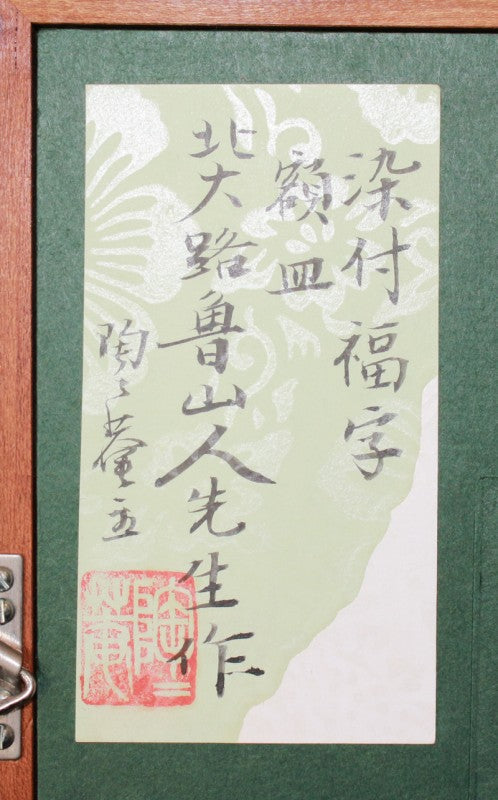 染付福字
額皿
北大路魯山人先生作
陶々菴主